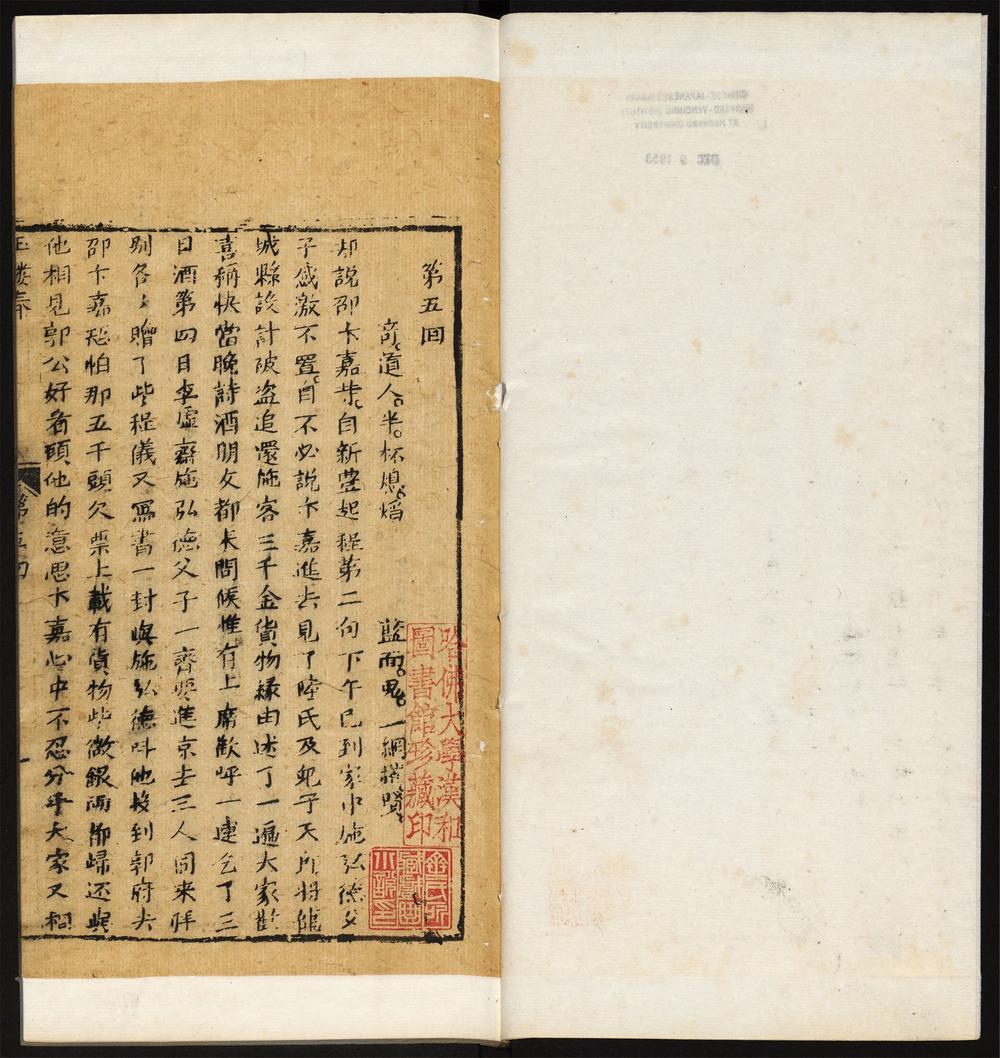 第五回
奇道人半杯熄焰　藍面鬼一網摧賢
却說邵卞嘉歩自新豊起程第二旬下午已到家中施弘德父
子感激不置自不必說卞嘉進去見了陸氏及兒子天所將龍
城縣設計破盗追還施客三千金貨物緣由述了一遍大家歡
喜稱快當晚詩酒朋友都來問候惟有上席歡呼一連乞了三
日酒第四日李虛齋施弘德父子一齊要進京去三人同來拜
别各〻贈了些程儀又寫書一封與施弘德呌他投到郭府去
邵卞嘉恐怕那五千頭欠票上載有貨物些微銀兩卽歸还與
他相見郭公好看頭他的意思卞嘉心中不忍分手大家又相
玉楼春
第五回
一
哈佛大學漢和
圖書館珍藏印
CHINESE-JAPANESE LIBRARY
HARVARD-YENCHING INSTITUTE
AT HARVARD UNIVERSITY
DEC 9 1953